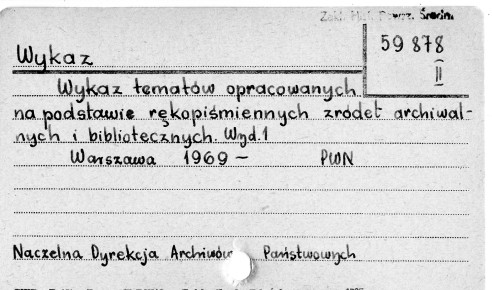 Zakł. Hist. Powsz. Średn.
59 878
II
Wykaz
Wykaz tematów opracowanych
na podstawie rękopiśmiennych źródeł archiwal-
nych i bibliotecznych. Wyd. 1
Warszawa 1969 - PWN
Naczelna Dyrekcja Archiwów Państwowych